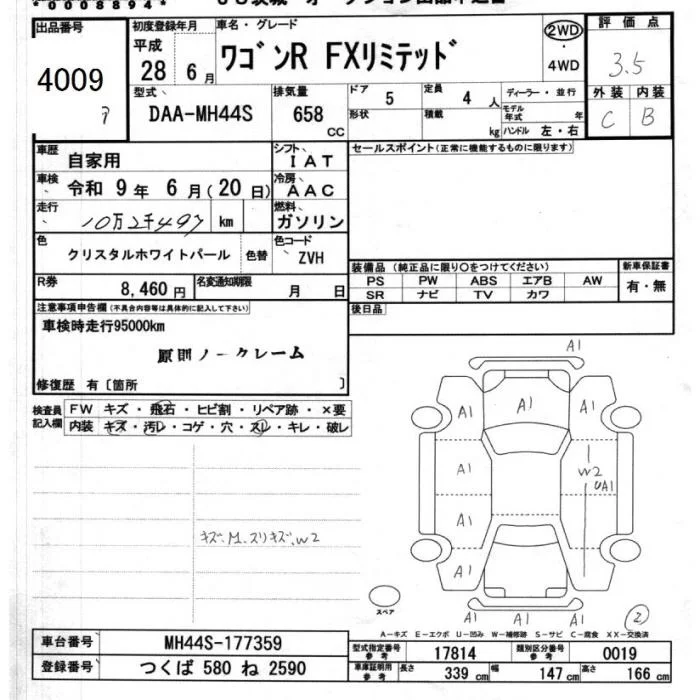 *0008894*
出品番号
4009
初度登録年月
平成
28 6月
車名・グレード
ワゴンR FXリミテッド
2WD
・
4WD
評価点
3.5
外装 内装
C B
型式
DAA-MH44S
排気量
658
CC
ドア
5
形状
定員
4人
積載
kg
ディーラー・並行
モデル年式 年
ハンドル 左・右
車歴
自家用
車検
令和 9年 6月(20日)
走行
10万2千497 km
色
クリスタルホワイトパール
色替
R券
8,460円
名変通知期限
月 日
シフト
IAT
冷房
AAC
燃料
ガソリン
色コード
ZVH
セールスポイント(正常に機能するものに限ります)
装備品(純正品に限り○をつけてください)
PS PW ABS エアB AW
SR ナビ TV カワ
新車保証書
有・無
後日品
注意事項申告欄(不具合内容等は具体的に記入して下さい)
車検時走行95000km
原則ノークレーム
修復歴 有〔箇所 〕
検査員記入欄
FW キズ・飛石・ヒビ割・リペア跡・×要
内装 キズ・汚レ・コゲ・穴・スレ・キレ・破レ
キズ.M.スリキズ.W2
A1
A1 A1 A1
A1
W2
UA1
A1
A1
A1 A1 A1
スペア
2
A-キズ E-エクボ U-凹み W-補修跡 S-サビ C-腐食 XX-交換済
車台番号
MH44S-177359
登録番号
つくば 580 ね 2590
型式指定番号
参考
17814
類別区分番号
参考
0019
車庫証明用
参考
長さ 339cm
幅 147cm
高さ 166cm